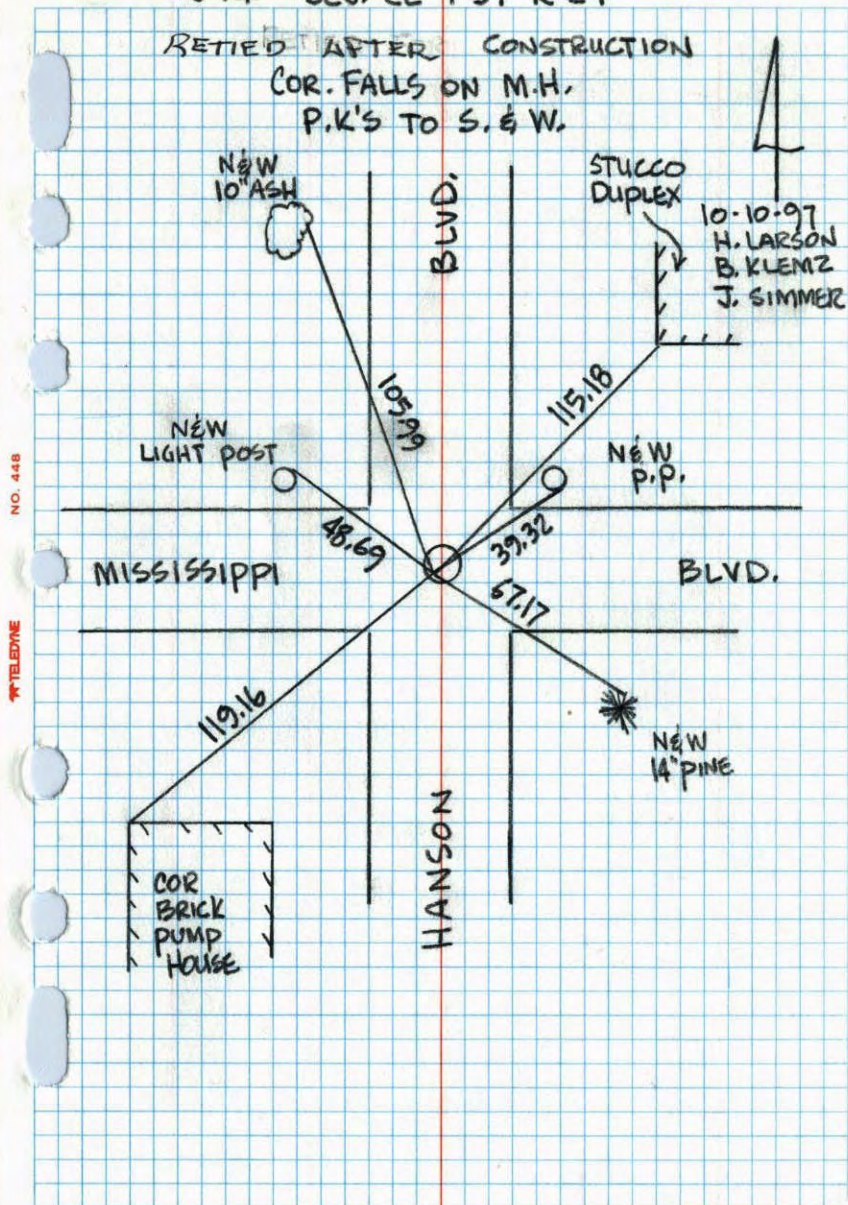 RETIED AFTER CONSTRUCTION
COR. FALLS ON M.H.
P.K'S TO S. & W.
N&W
10" ASH
BLVD.
STUCCO
DUPLEX
10-10-97
H. LARSON
B. KLEMZ
J. SIMMER
105.99
115.18
N&W
LIGHT POST
N&W
P.P.
48.69
39.32
MISSISSIPPI
BLVD.
67.17
119.16
N&W
14" PINE
HANSON
COR
BRICK
PUMP
HOUSE
NO. 448
TELEDYNE